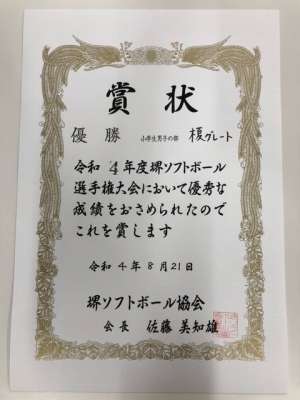 賞状
優勝 小学生男子の部 榎グレート
令和4年度堺ソフトボール
選手権大会において優秀な
成績をおさめられたので
これを賞します
令和4年8月21日
堺ソフトボール協会
会長 佐藤美知雄